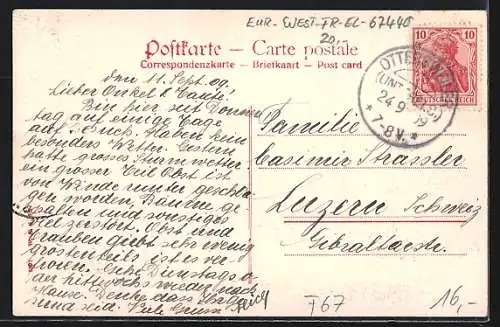 EUR-WEST-FR-EL-67440
20,-
Postkarte — Carte postale
Correspondenzkarte — Briefkaart — Post card
10 10
DEUTSCHES REICH
OTTER
(UNT. ELS)
24 9
7-8 V.
den 11. Sept. 09.
Lieber Onkel & Tante!
Bin hier seit Donners
tag auf einige Tage
auf Besuch. Haben kein
besonders Wetter. Gestern
hatte grosses Sturmwetter
ein grosser Teil Obst ist
vom Winde runter geschla-
gen worden, Bäume ge
spalten und sonstiges
viel zerstört. Obst und
Trauben giebt sehr wenig
grostenteils ist es ver-
froren. Gehe Dienstags o
der Mittwochs wieder nach
Hause. Denke dass
und seid. Viele Grüsse
Familie
Casimir Strassler
Luzern Schweiz
Gibraltarstr.
T67
16,-